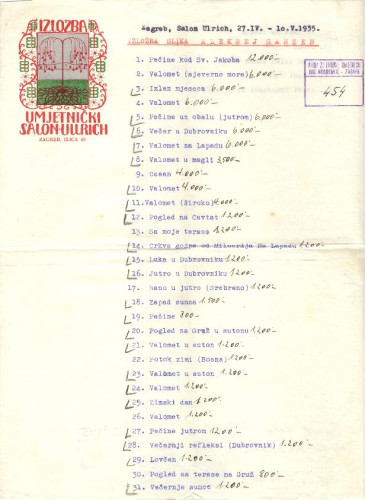 IZLOŽBA
UMJETNIČKI
SALON ULLRICH
ZAGREB, ILICA 40
Zagreb, Salon Ulrich, 27.IV. - 10.V.1935.
IZLOŽBA SLIKA ALEKSEJ HANZEN
454
1. Pećine kod Sv. Jakoba 12.000.-
2. Valomet (sjeverno more) 6.000.-
3. Izlaz mjeseca 6.000.-
4. Valomet 6.000.-
5. Pećine uz obalu (jutrom) 6.000.-
6. Večer u Dubrovniku 6.000.-
7. Valomet na Lapadu 6.000.-
8. Valomet u magli 3500.-
9. Ocean 4.000.-
10. Valomet 4.000.-
11. Valomet (široko) 4.000.-
12. Pogled na Cavtat 1.200.-
13. Sa moje terase 1.200.-
14. Crkva gospe od Milosrdja na Lapadu 1.200.-
15. Luka u Dubrovniku 1.200.-
16. Jutro u Dubrovniku 1.200.-
17. Rano u jutro (Srebreno) 1.200.-
18. Zapad sunca 1.500.-
19. Pećine 800.-
20. Pogled na Gruž u sutonu 1.200.-
21. Valomet u suton 1.200.-
22. Potok zimi (Bosna) 1.200.-
23. Valomet u suton 1.200.-
24. Valomet 1.200.-
25. Zimski dan 1.200.-
26. Valomet 1.200.-
27. Pećine jutrom 1200.-
28. Večernji refleksi (Dubrovnik) 1.200.-
29. Lovćen 1.200.-
30. Pogled sa terase na Gruž 800.-
31. Večernje sunce 1.200.-